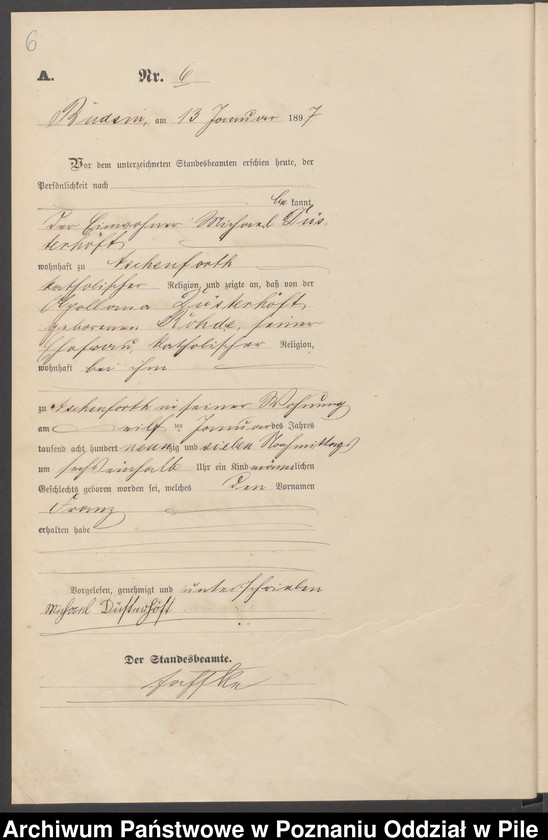 6
A. Nr. 6
am 13 Januar 1897
Vor dem unterzeichneten Standesbeamten erschien heute, der
Persönlichkeit nach
be kannt,
der Einwohner Michael Düs-
terhöft
wohnhaft zu Aschenforth
katholischer Religion, und zeigte an, daß von der
Apollonia Düsterhöft
geborenen Rohde, seiner
Ehefrau, katholischer Religion,
wohnhaft bei ihm
zu Aschenforth in seiner Wohnung
am eilf ten Januar des Jahres
tausend acht hundert neunzig und sieben Nachmittags
um sechs einhalb Uhr ein Kind männlichen
Geschlechts geboren worden sei, welches den Vornamen
Franz
erhalten habe
Vorgelesen, genehmigt und unterschrieben
Michael Düsterhöft
Der Standesbeamte.
Archiwum Państwowe w Poznaniu Oddział w Pile